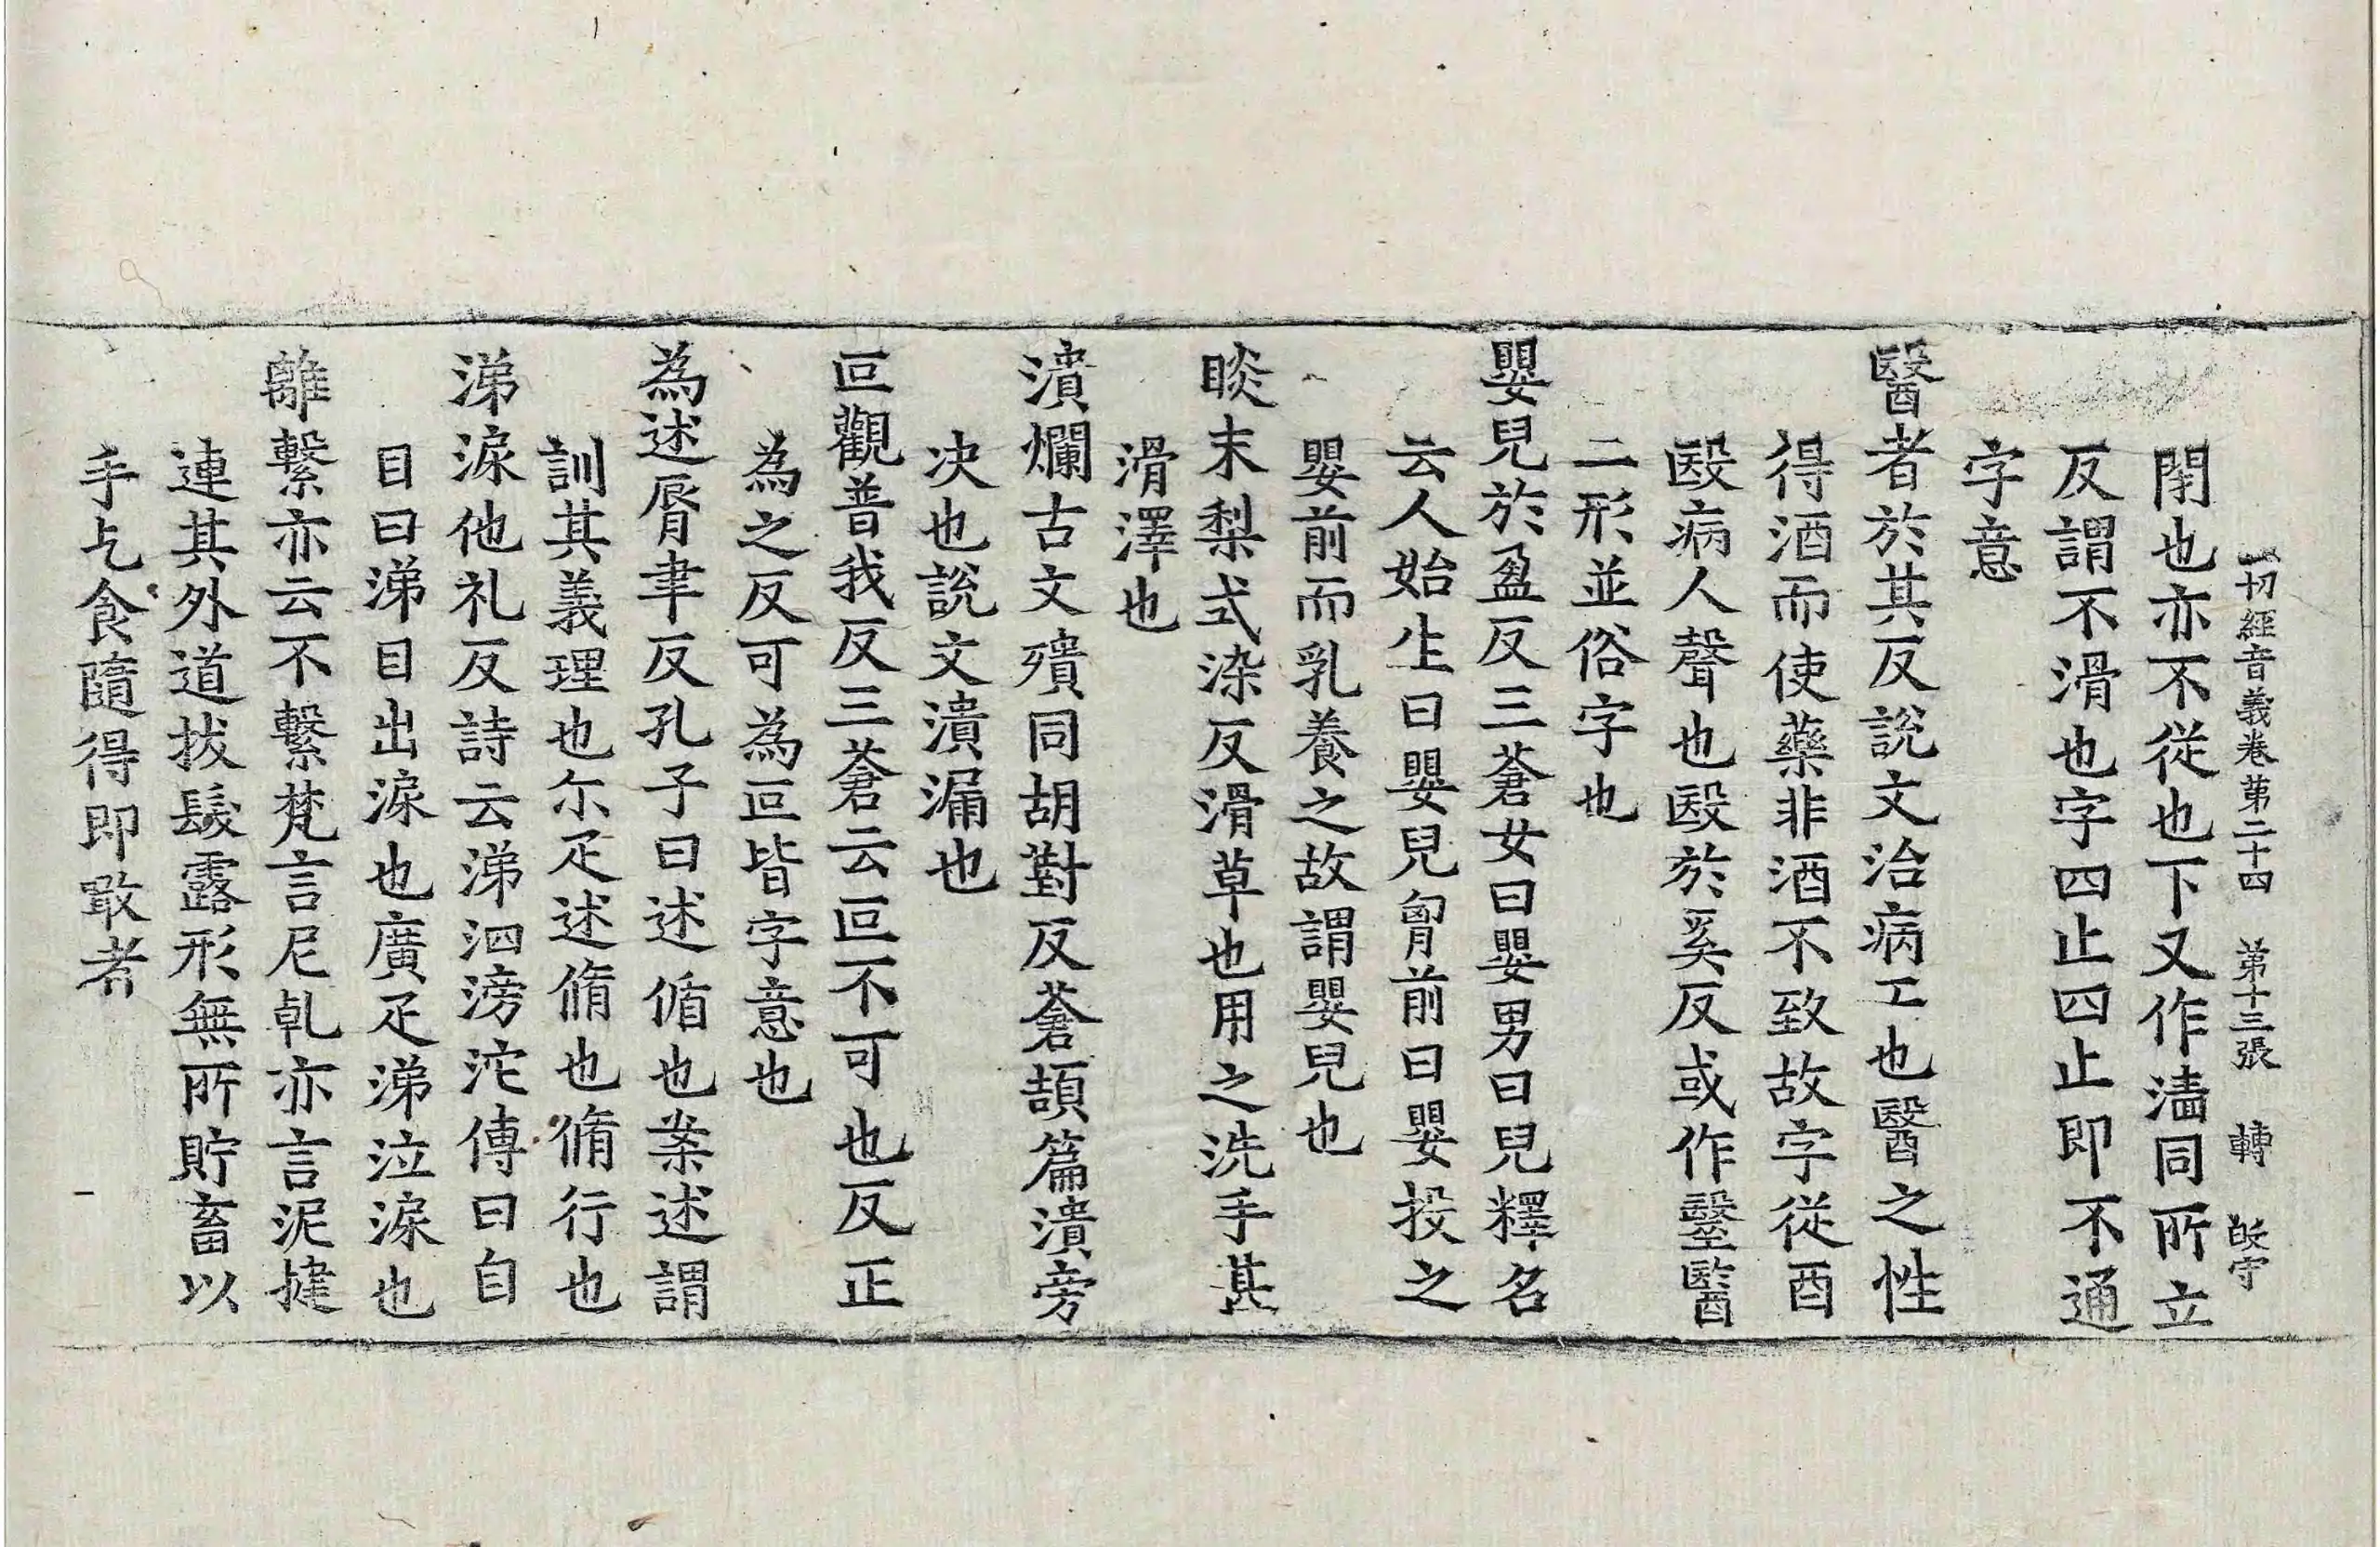 一切經音義卷第二十四　第十三張　轉
閇也亦不從也下又作濇同所立
反謂不滑也字四止四止即不通
字意
醫者於其反說文治病工也醫之性
得酒而使藥非酒不致故字從酉
殹病人聲也殹於奚反或作毉醫
二形並俗字也
嬰兒於盈反三蒼女曰嬰男曰兒釋名
云人始生曰嬰兒胷前曰嬰投之
嬰前而乳養之故謂嬰兒也
睒末梨式染反滑草也用之洗手甚
滑澤也
潰爛古文殨同胡對反蒼頡篇潰旁
决也說文潰漏也
叵觀普我反三蒼云叵不可也反正
為之反可為叵皆字意也
為述脣聿反孔子曰述循也案述謂
訓其義理也尒疋述脩也脩行也
涕淚他礼反詩云涕泗滂沱傳曰自
目曰涕目出淚也廣疋涕泣淚也
離繫亦云不繫梵言尼乹亦言泥揵
連其外道拔髮露形無所貯畜以
手乞食隨得即敢者